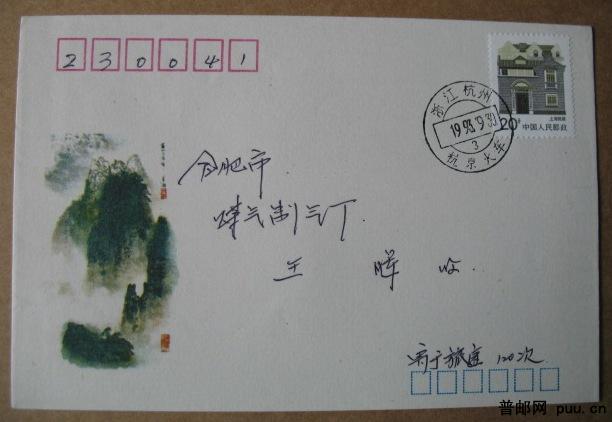 230041
浙江杭州
1993.9.30
3
杭京火车
20分
上海民居
中国人民邮政
合肥市
煤气制气厂
王 晖 收
寄于旅途 120次
普邮网 puu.cn